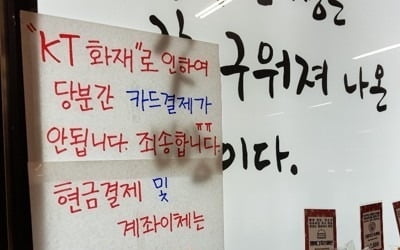 "KT 화재"로 인하여
당분간 카드결제가
안됩니다. 죄송합니다. ㅠㅠ
현금결제 및
계좌이체는
구워져 나온
이다.